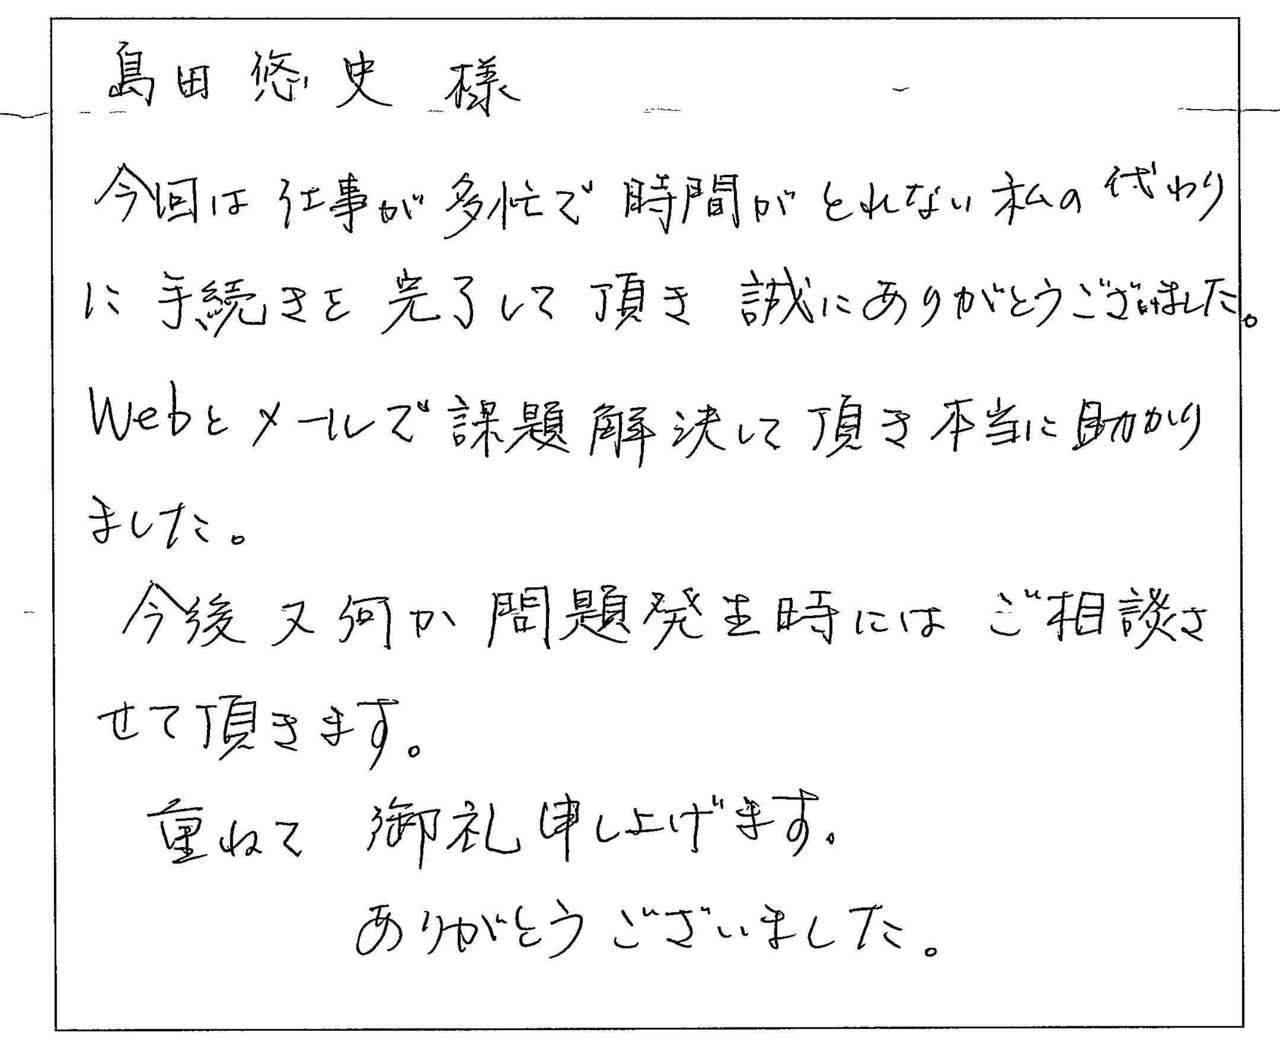 島田悠史 様
今回は仕事が多忙で時間がとれない私の代わり
に手続きを完了して頂き 誠にありがとうございました。
Webとメールで課題解決して頂き本当に助かり
ました。
今後又何か問題発生時にはご相談さ
せて頂きます。
重ねて 御礼申し上げます。
ありがとうございました。